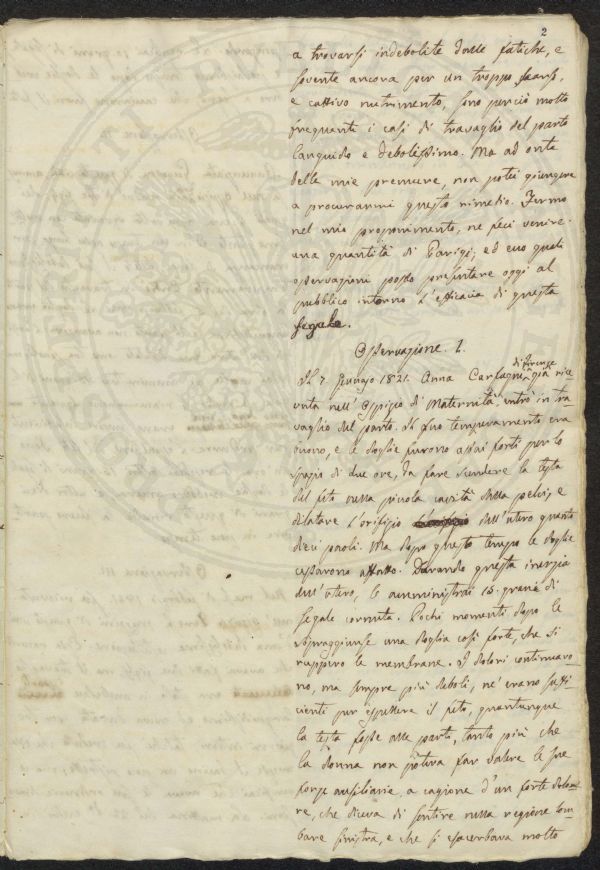 2
a trovarsi indebolite dalle fatiche, e
sovente ancora per un troppo scarso,
e cattivo nutrimento, sono perciò molto
frequenti i casi di travaglio del parto
languido e debolissimo. Ma ad onta
delle mie premure, non potei giungere
a procurarmi questo rimedio. Fermo
nel mio proponimento, ne feci venire
una quantità di Parigi; ed ecco quali
osservazioni posso presentare oggi al
pubblico intorno l'efficacia di questa
segale.
Osservazione. 1.
Il 7 1821. Anna di Firenze già rice-
vuta nell'Ospizio di Maternità, entrò in tra-
vaglio del parto. Il suo temperamento era
buono, e le doglie furono assai forti per lo
spazio di due ore, da fare scendere la testa
del feto nella piccola cavità della pelvi, e
dilatare l'orifizio dell'utero quanto
dieci paoli. Ma dopo questo tempo le doglie
cessarono affatto. Durando questa inerzia
dell'utero, le amministrai 15. grani di
segale cornuta. Pochi momenti dopo le
sopraggiunse una doglia così forte, che si
ruppero le membrane. I dolori continuaro-
no, ma sempre più deboli, nè erano suffi-
cienti per espellere il feto, quantunque
la testa fosse alle parti, tanto più che
la donna non poteva far valere le sue
forze ausiliarie, a cagione d'un forte dolo-
re, che diceva di sentire nella regione lom-
bare sinistra, e che si esacerbava molto